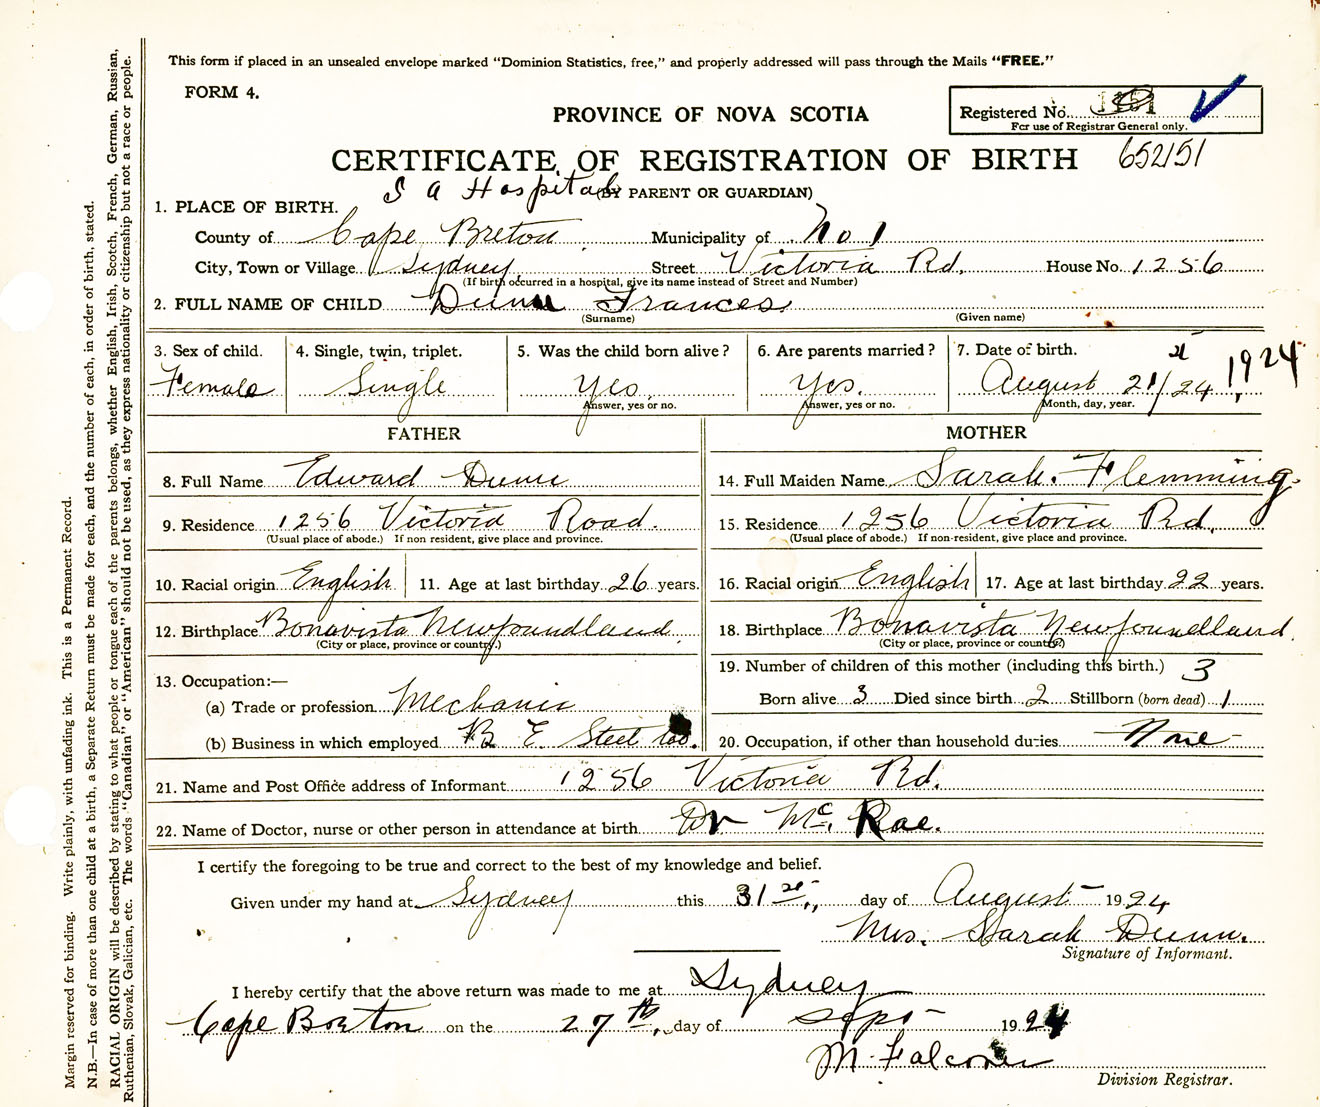 This form if placed in an unsealed envelope marked "Dominion Statistics, free," and properly addressed will pass through the Mails "FREE."
FORM 4.
PROVINCE OF NOVA SCOTIA
Registered No.
For use of Registrar General only.
CERTIFICATE OF REGISTRATION OF BIRTH 652151
S A Hospital (BY PARENT OR GUARDIAN)
1. PLACE OF BIRTH.
County of Cape Breton Municipality of No 1
City, Town or Village Sydney Street Victoria Rd. House No. 1256
(If birth occurred in a hospital, give its name instead of Street and Number)
2. FULL NAME OF CHILD Dunn Frances
(Surname) (Given name)
3. Sex of child. 4. Single, twin, triplet. 5. Was the child born alive? 6. Are parents married? 7. Date of birth.
Female Single Yes. Yes. August 21st/24, 1924
Answer, yes or no. Answer, yes or no. Month, day, year.
FATHER MOTHER
8. Full Name Edward Dunn 14. Full Maiden Name Sarah. Flemming.
9. Residence 1256 Victoria Road. 15. Residence 1256 Victoria Rd.
(Usual place of abode.) If non resident, give place and province. (Usual place of abode.) If non-resident, give place and province.
10. Racial origin English 11. Age at last birthday 26 years. 16. Racial origin English 17. Age at last birthday 22 years.
12. Birthplace Bonavista Newfoundland. 18. Birthplace Bonavista Newfoundland.
(City or place, province or country.) (City or place, province or country)
13. Occupation:— 19. Number of children of this mother (including this birth.) 3
(a) Trade or profession Mechanic Born alive 3 Died since birth 2 Stillborn (born dead) 1
(b) Business in which employed B E Steel Co. 20. Occupation, if other than household duties None
21. Name and Post Office address of Informant 1256 Victoria Rd.
22. Name of Doctor, nurse or other person in attendance at birth Dr Mc. Rae.
I certify the foregoing to be true and correct to the best of my knowledge and belief.
Given under my hand at Sydney this 31st day of August 1924
Mrs. Sarah Dunn.
Signature of Informant.
I hereby certify that the above return was made to me at Sydney
Cape Breton on the 27th, day of Sept 1924
M. Falconer
Division Registrar.
Margin reserved for binding. Write plainly, with unfading ink. This is a Permanent Record.
N.B.—In case of more than one child at a birth, a Separate Return must be made for each, and the number of each, in order of birth, stated.
RACIAL ORIGIN will be described by stating to what people or tongue each of the parents belongs, whether English, Irish, Scotch, French, German, Russian,
Ruthenian, Slovak, Galician, etc. The words "Canadian" or "American" should not be used, as they express nationality or citizenship but not a race or people.